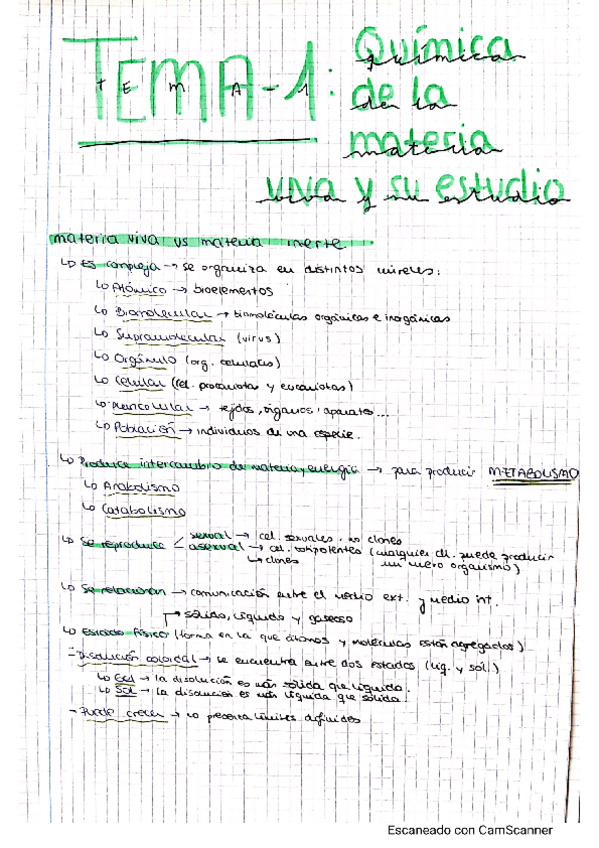 TEMA-1: Química
de la
materia
viva y su estudio
materia viva vs materia inerte
↳ Es compleja → se organiza en distintos niveles:
↳ Atómico → bioelementos
↳ Biomolecular → biomoléculas orgánicas e inorgánicas
↳ Supramolecular (virus)
↳ Orgánulo (org. celulares)
↳ Celular (cel. procariotas y eucariotas)
↳ Pluricelular → tejidos, órganos, aparatos...
↳ Población → individuos de una especie.
↳ Produce intercambio de materia y energía → para producir METABOLISMO
↳ Anabolismo
↳ Catabolismo
↳ Se reproduce < sexual → cel. sexuales. no clones
asexual → cel. totipotentes (cualquier cel. puede producir
↳ clones un nuevo organismo)
↳ Se relacionan → comunicación entre el medio ext. y medio int.
→ sólido, líquido y gaseoso
↳ Estado físico (forma en la que átomos y moléculas están agregados).
- Disolución coloidal → se encuentra entre dos estados (líq. y sól.)
↳ Gel → la disolución es más sólida que líquida.
↳ Sol → la disolución es más líquida que sólida.
- Puede crecer → no presenta límites definidos
Escaneado con CamScanner